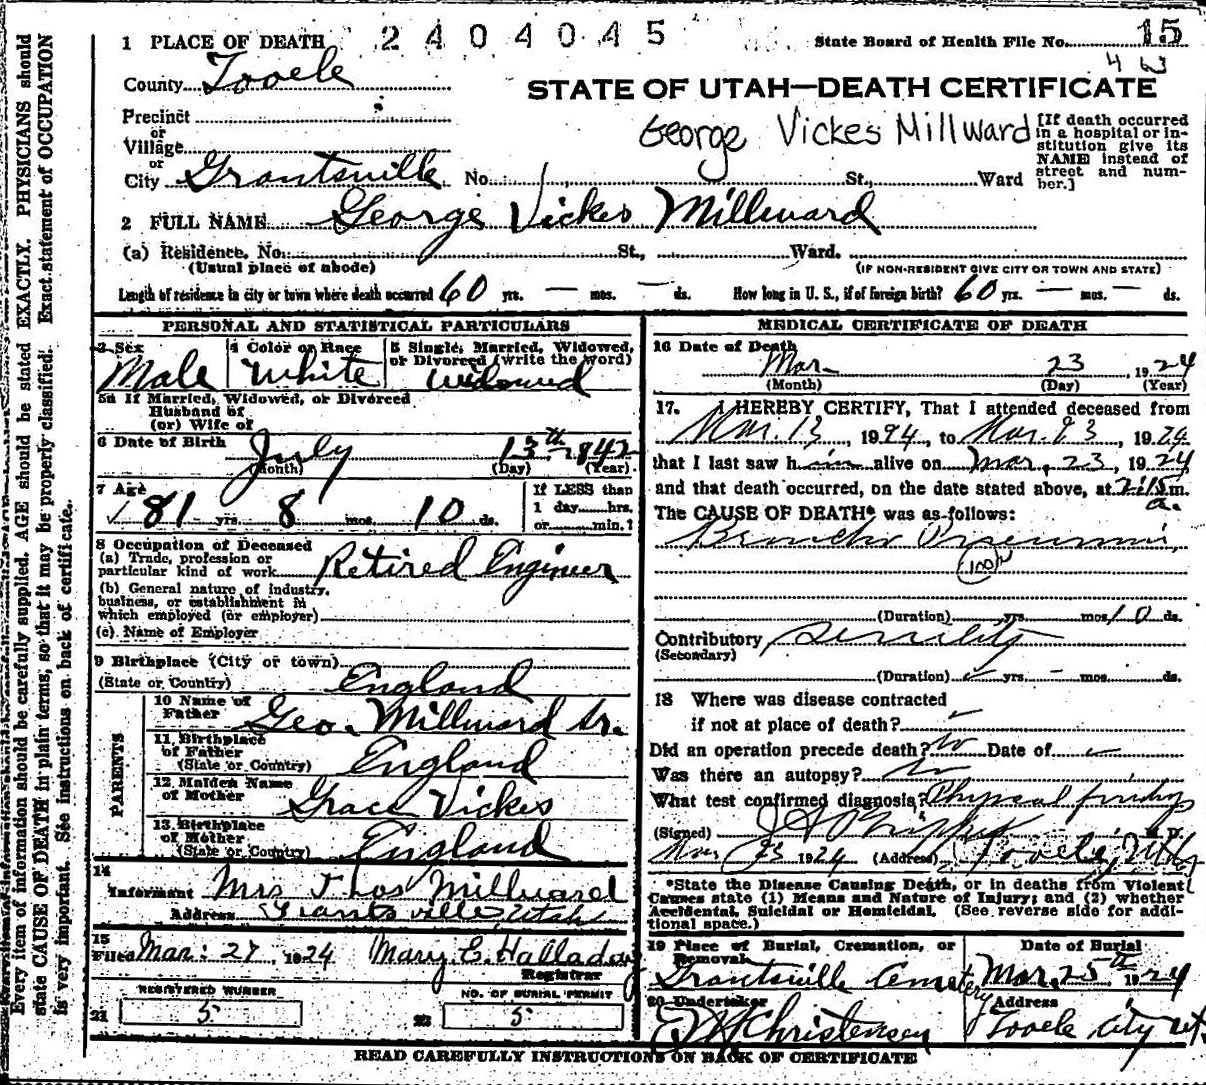 1 PLACE OF DEATH 2404045 State Board of Health File No. 15
County Tooele 463
STATE OF UTAH—DEATH CERTIFICATE
Precinct
or
Village
or
City Grantsville No. St., Ward
George Vickes Millward
[If death occurred in a hospital or institution give its NAME instead of street and number.]
2 FULL NAME George Vickes Millward
(a) Residence. No. St., Ward.
(Usual place of abode) (IF NON-RESIDENT GIVE CITY OR TOWN AND STATE)
Length of residence in city or town where death occurred 60 yrs. — mos. — ds. How long in U. S., if of foreign birth? 60 yrs. — mos. — ds.
PERSONAL AND STATISTICAL PARTICULARS
3 Sex Male
4 Color or Race White
5 Single, Married, Widowed, or Divorced (write the word) Widowed
5a If Married, Widowed, or Divorced
Husband of
(or) Wife of
6 Date of Birth July 13th 1842
(Month) (Day) (Year)
7 Age 81 yrs. 8 mos. 10 ds.
If LESS than
1 day hrs.
or min.?
8 Occupation of Deceased
(a) Trade, profession or
particular kind of work Retired Engineer
(b) General nature of industry,
business, or establishment in
which employed (or employer)
(c) Name of Employer
9 Birthplace (City or town)
(State or Country) England
PARENTS
10 Name of Father Geo. Millward Sr.
11 Birthplace of Father
(State or Country) England
12 Maiden Name of Mother Grace Vickes
13 Birthplace of Mother
(State or Country) England
14
Informant Mrs Thos Millward
Address Grantsville, Utah
15
Filed Mar. 27, 1924 Mary E. Halladay
Registrar
REGISTERED NUMBER NO. OF BURIAL PERMIT
21 5 22 5
MEDICAL CERTIFICATE OF DEATH
16 Date of Death Mar 23, 1924
(Month) (Day) (Year)
17. I HEREBY CERTIFY, That I attended deceased from
Mar. 13, 1924, to Mar. 23, 1924
that I last saw him alive on Mar. 23, 1924
and that death occurred, on the date stated above, at 2:15 a.m.
The CAUSE OF DEATH* was as follows:
Broncho Pneumonia
(Duration) yrs. mos. 10 ds.
Contributory Senility
(Secondary)
(Duration) yrs. - mos. ds.
18 Where was disease contracted
if not at place of death?
Did an operation precede death? No Date of
Was there an autopsy? No
What test confirmed diagnosis? Physical findings
(Signed) M. D.
Mar 23 1924 (Address) Tooele, Utah
*State the Disease Causing Death, or in deaths from Violent
Causes state (1) Means and Nature of Injury; and (2) whether
Accidental, Suicidal or Homicidal. (See reverse side for additional space.)
19 Place of Burial, Cremation, or Removal Date of Burial
Grantsville Cemetery Mar. 25th 1924
20 Undertaker Address
Christensen Tooele City Ut.
READ CAREFULLY INSTRUCTIONS ON BACK OF CERTIFICATE
Every item of information should be carefully supplied. AGE should be stated EXACTLY. PHYSICIANS should
state CAUSE OF DEATH in plain terms, so that it may be properly classified. Exact statement of OCCUPATION
is very important. See instructions on back of certificate.